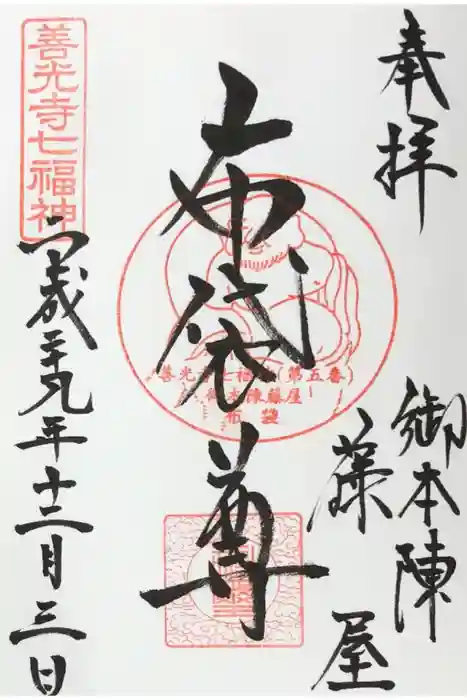 奉拝
御本陳
藤屋
布袋尊
善光寺七福神
善光寺七福神(第五番)
御本陳藤屋
布袋
平成二十九年十二月三日